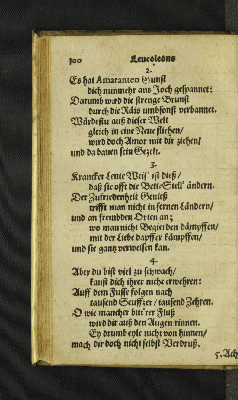 100 Leucoleons
2.
Es hat Amaranten Gunst
dich nunmehr ans Joch gespannet:
Darumb wird die strenge Brunst
durch die Räis umbsonst verbannet.
Würdestu auß dieser Welt
gleich in eine Neue fliehen/
wird doch Amor mit dir ziehen/
und da bauen sein Gezelt.
3.
Krancker Leute Weis' ist dieß/
daß sie offt die Bett-Stell' ändern.
Der Zufriedenheit Genieß
trifft man nicht in fernen Ländern/
und an frembden Orten an;
wo man nicht Begierden dämpffen/
mit der Liebe dapffer kämpffen/
und sie gantz verweisen kan.
4.
Aber du bist viel zu schwach/
kanst dich ihrer nicht erwehren:
Auff dem Fusse folgen nach
tausend Seuffzer/ tausend Zehren.
O wie mancher bittrer Fluß
wird dir auß den Augen rinnen.
Ey drumb eyle nicht von hinnen/
mach dir doch nicht selbst Verdruß.
5. Ach